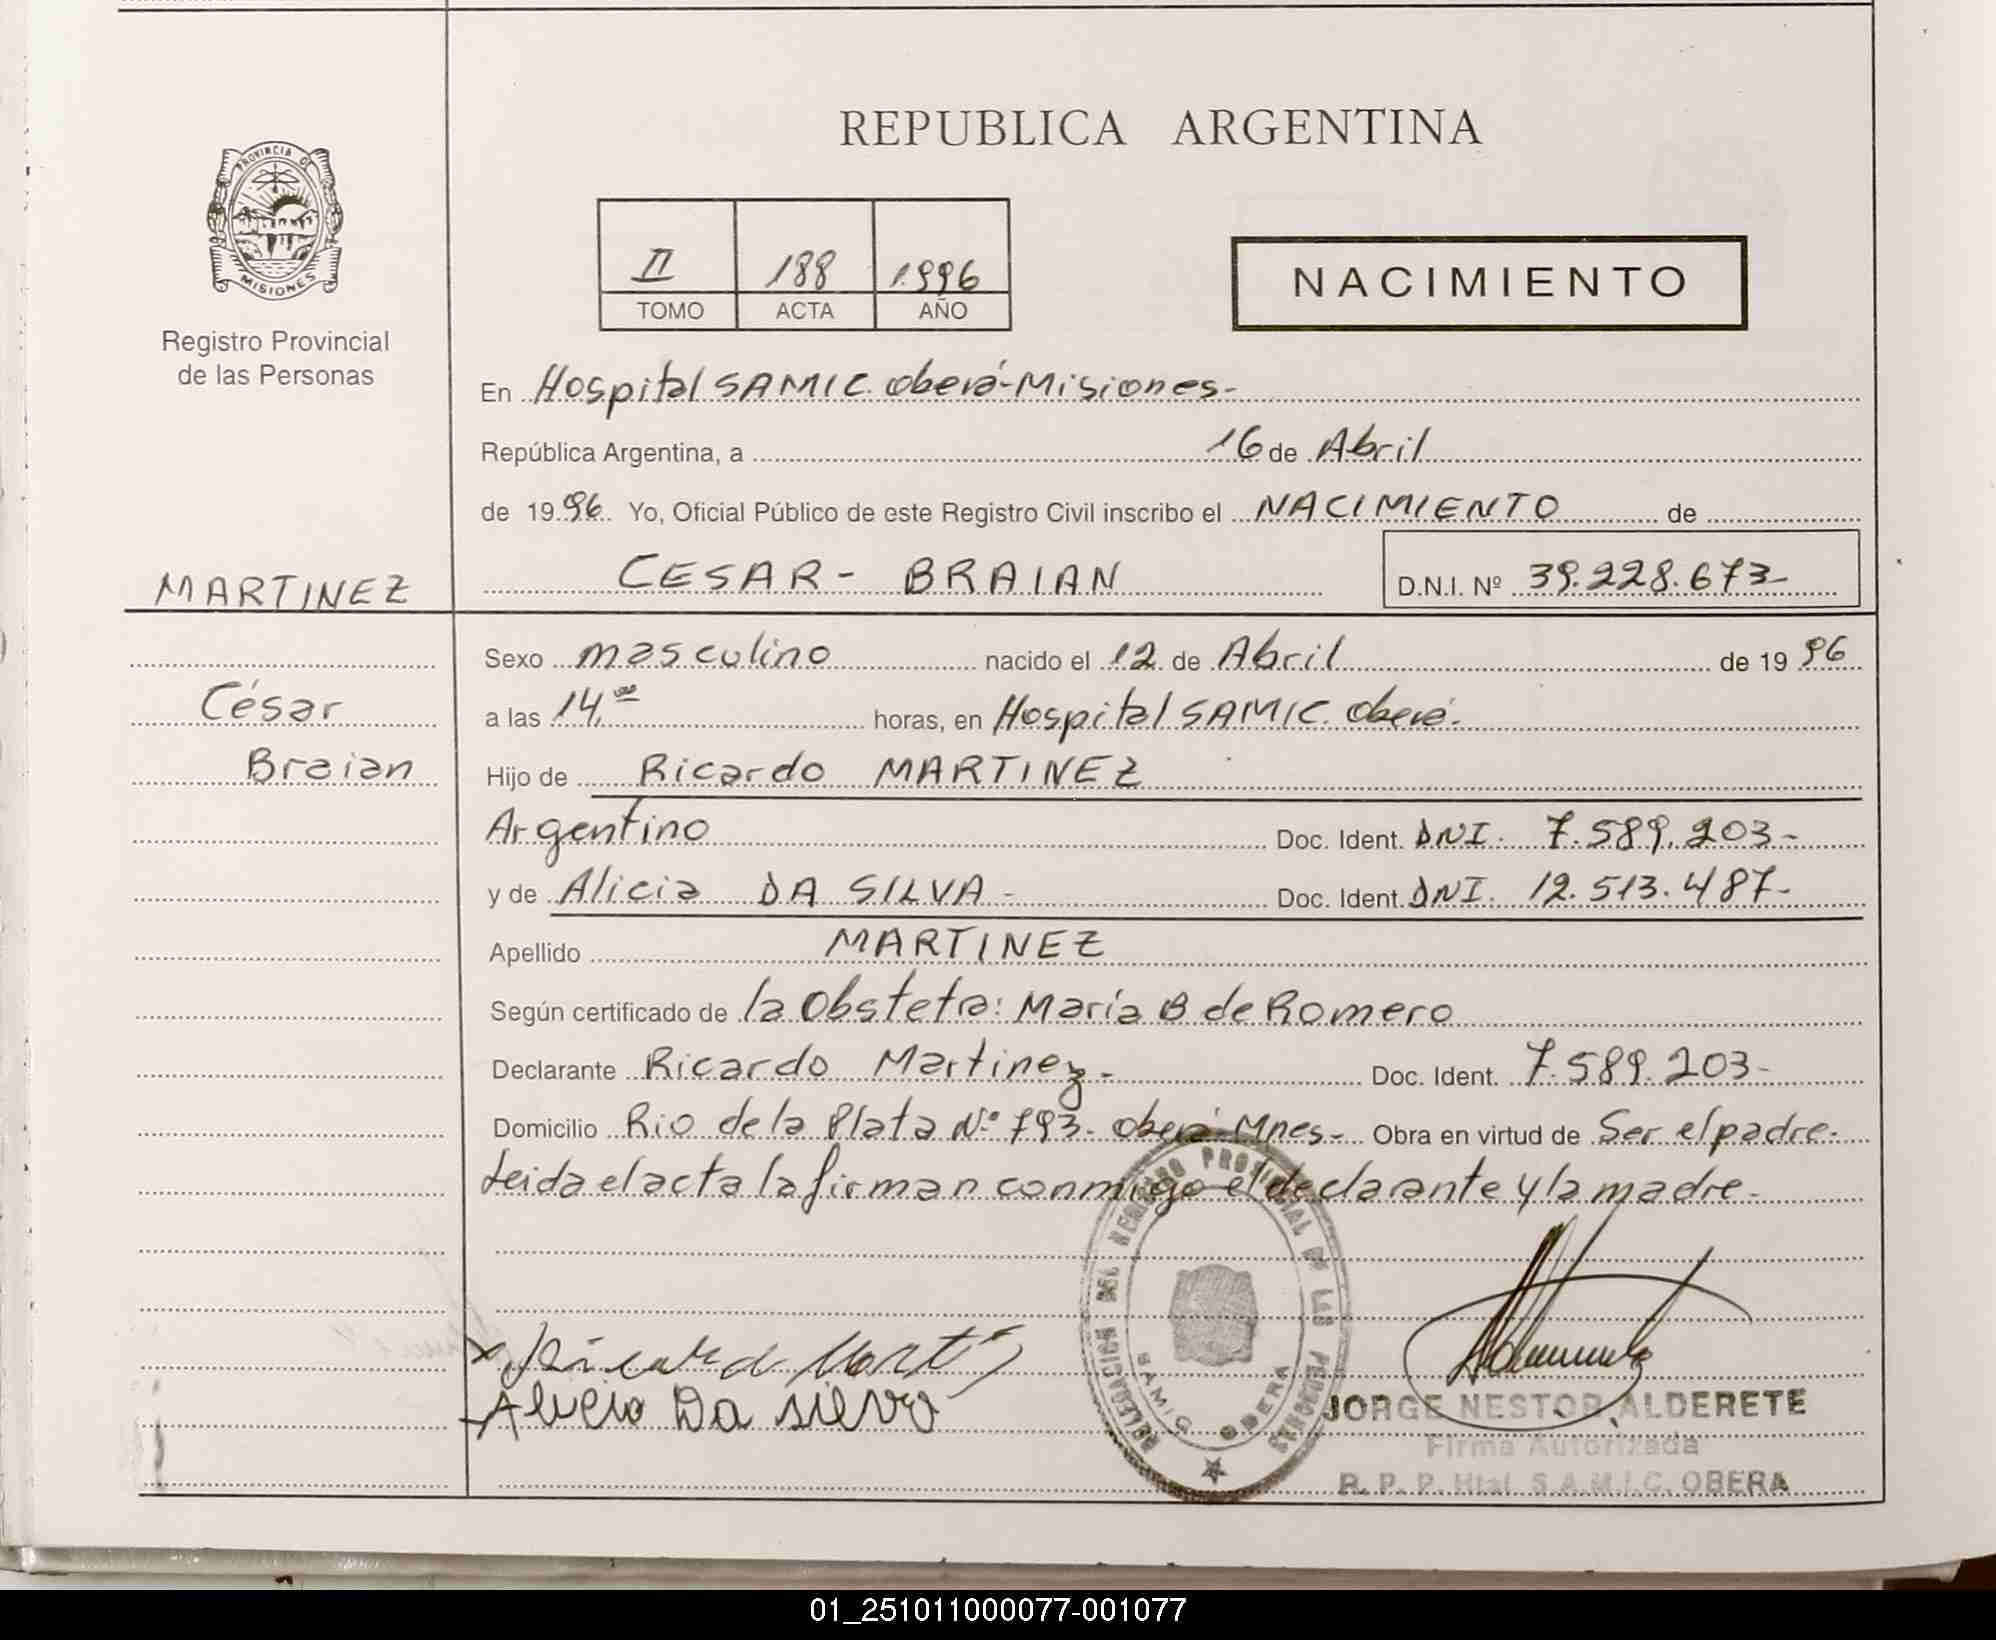 REPUBLICA ARGENTINA
PROVINCIA DE
MISIONES
Registro Provincial
de las Personas
II 188 1996
TOMO ACTA AÑO
NACIMIENTO
En Hospital SAMIC. Oberá-Misiones-
República Argentina, a 16 de Abril
de 1996. Yo, Oficial Público de este Registro Civil inscribo el NACIMIENTO de
MARTINEZ
CESAR - BRAIAN
D.N.I. Nº 39.228.673-
César
Braian
Sexo masculino nacido el 12 de Abril de 1996
a las 14,00 horas, en Hospital SAMIC. Oberá.
Hijo de Ricardo MARTINEZ
Argentino Doc. Ident. DNI. 7.589.203-
y de Alicia DA SILVA - Doc. Ident. DNI. 12.513.487-
Apellido MARTINEZ
Según certificado de la Obstetra: María B de Romero
Declarante Ricardo Martinez- Doc. Ident. 7.589.203-
Domicilio Rio de la Plata Nº 793- Oberá-Mnes- Obra en virtud de Ser el padre-
Leida el acta la firman conmigo el declarante y la madre-
DELEGACION DEL REGISTRO PROVINCIAL DE LAS PERSONAS
SAMIC OBERA
Alicia Da silva
JORGE NESTOR ALDERETE
Firma Autorizada
R. P. P. Htal. S.A.M.I.C. OBERA
01_251011000077-001077